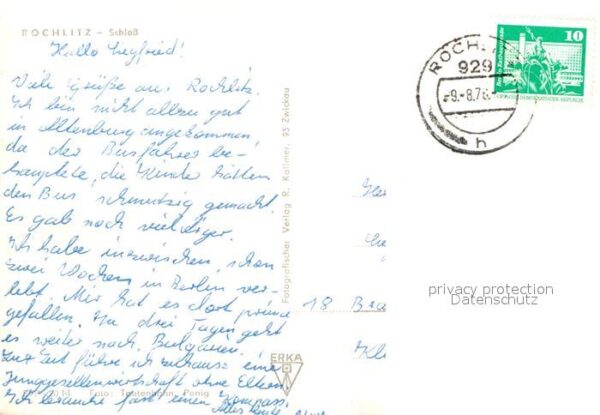 ROCHLITZ – Schloß
Hallo Siegfried!
Viele Grüße aus Rochlitz.
Ich bin nicht allzu gut
in Altenburg angekommen,
da der Busfahrer be-
hauptete, die Kinder hätten
den Bus schmutzig gemacht.
Es gab noch viel Ärger.
Ich habe inzwischen schon
zwei Wochen in Berlin ver-
lebt. Mir hat es dort prima
gefallen. In drei Tagen geht
es weiter nach Bulgarien.
Zur Zeit führe ich zuhause eine
Junggesellenwirtschaft ohne Eltern
Ich brauche fast einen Kompass
Alles Gute
Foto: Teutenhahn, Penig
Fotografischer Verlag R. Kallmer, 95 Zwickau
ERKA
ROCHLITZ
929
-9.-8.76
h
10
DEUTSCHE DEMOKRATISCHE REPUBLIK
18
privacy protection
Datenschutz